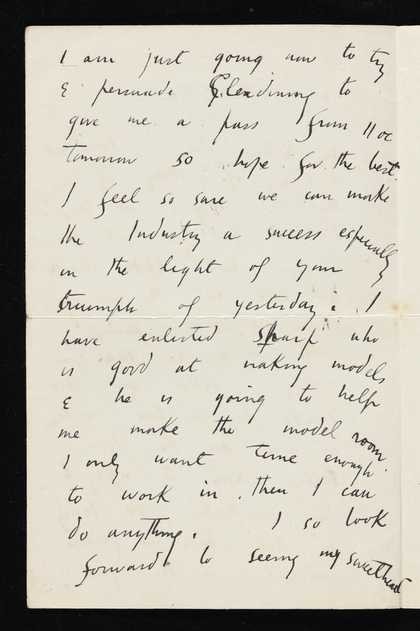 I am just going now to try
& persuade Glendinning to
give me a pass from 11 oc
tomorrow so hope for the best.
I feel so sure we can make
the Industry a success especially
in the light of your
triumph of yesterday. I
have enlisted Sharp who
is good at making models
& he is going to help
me make the model room.
I only want time enough
to work in. Then I can
do anything. I so look
forward to seeing my sweetheart